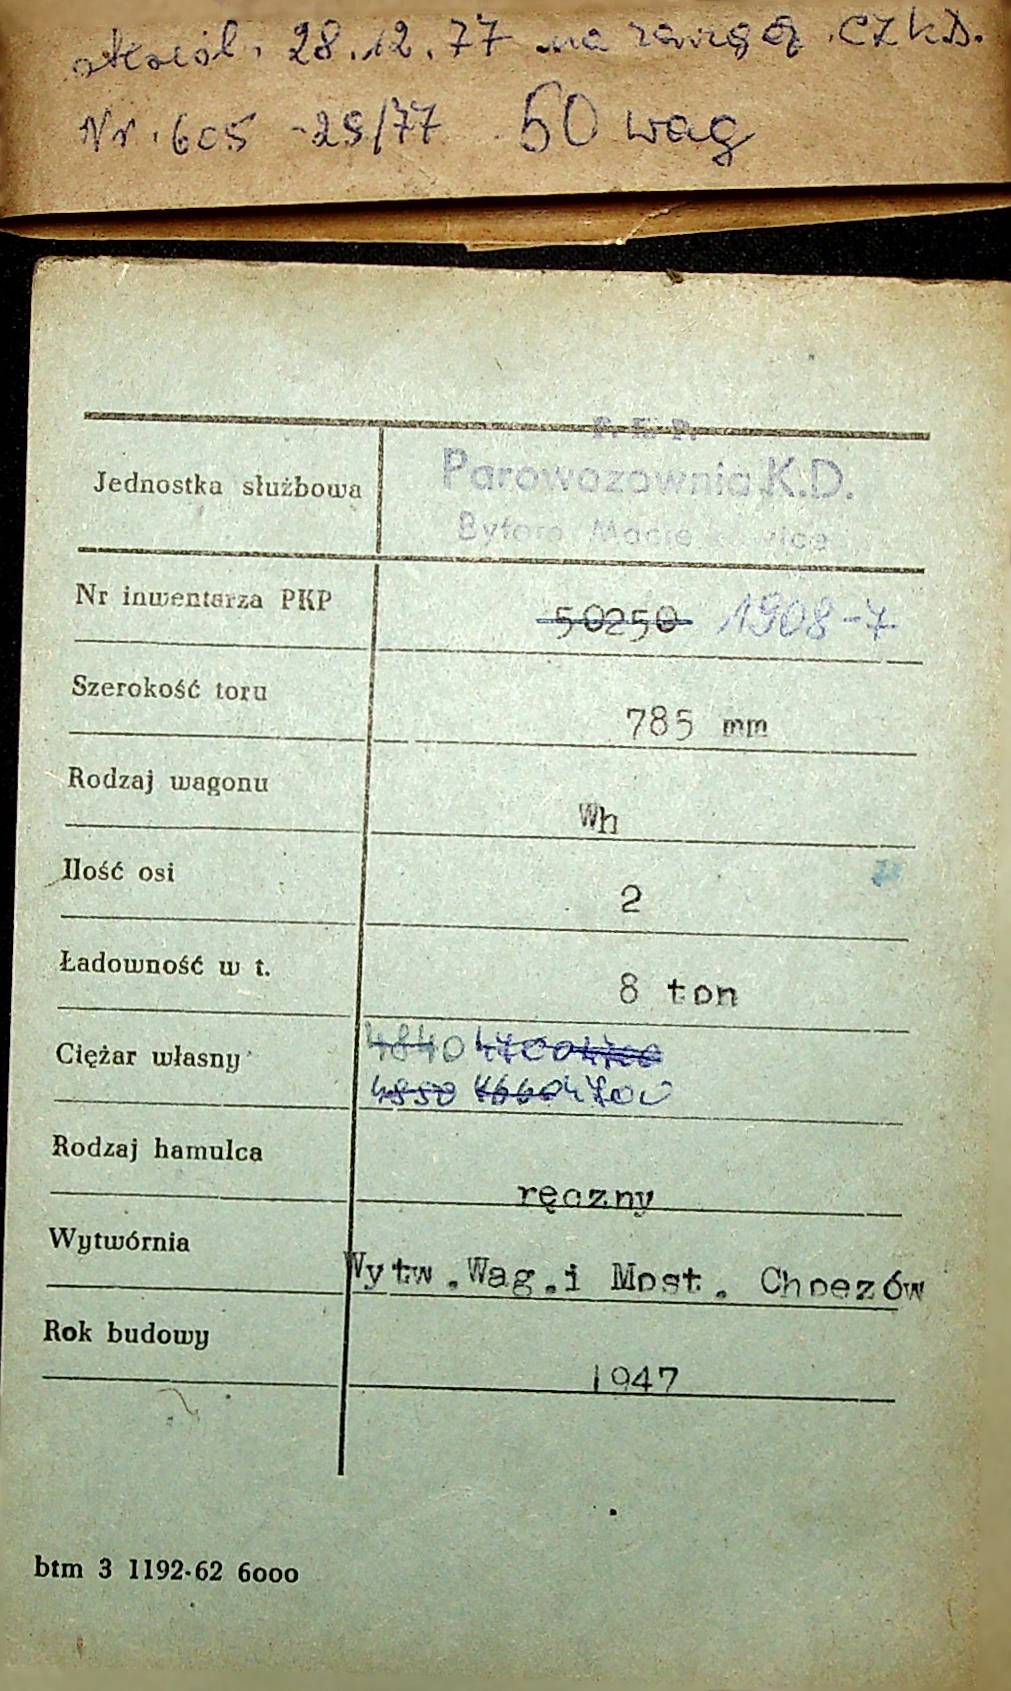 28.12.77 na CZKD.
Nr. 605 -29/77 50 wag
P. K. P.
Jednostka służbowa Parowozownia K.D.
Bytom
Nr inwentarza PKP 50250 1908-7
Szerokość toru 785 mm
Rodzaj wagonu Wh
Ilość osi 2
Ładowność w t. 8 ton
Ciężar własny 4840 4700
4850 4660 4700
Rodzaj hamulca ręczny
Wytwórnia Wytw.Wag.i Most. Choezów
Rok budowy 1947
btm 3 1192-62 6000